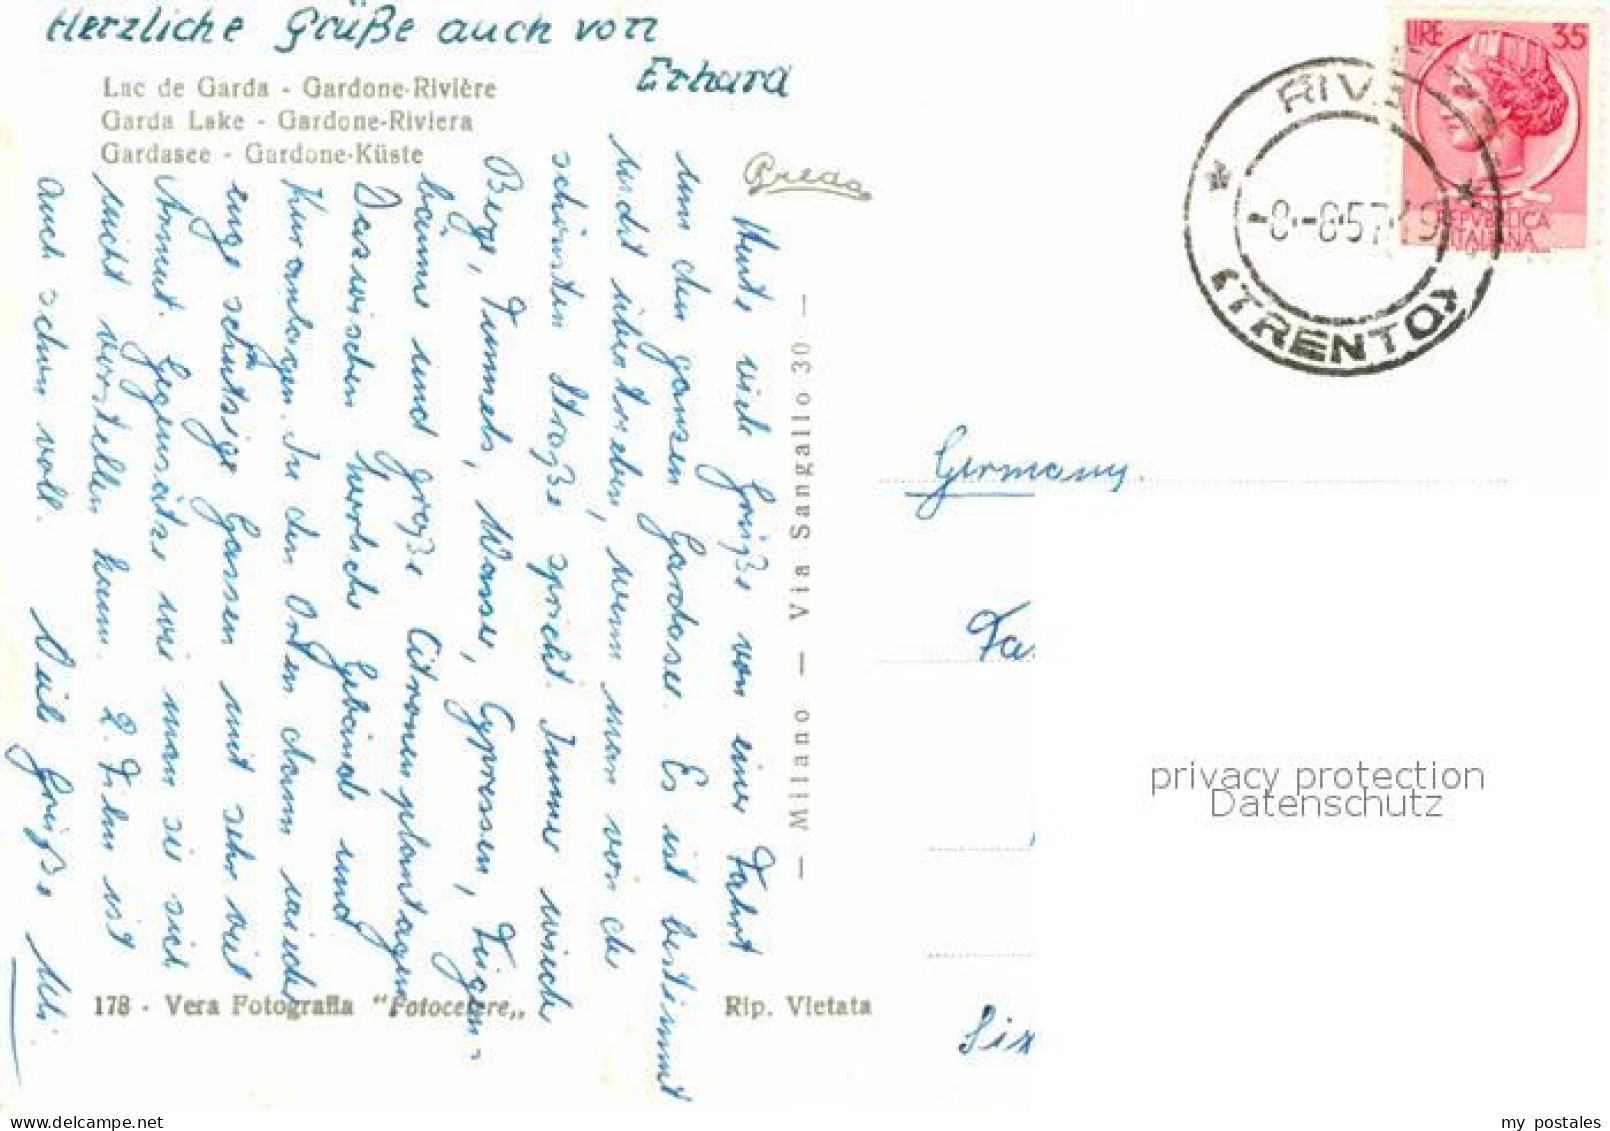 Herzliche Grüße auch von
Erhard
Lac de Garda - Gardone-Rivière
Garda Lake - Gardone-Riviera
Gardasee - Gardone-Küste
Heute viele Grüße von einer Fahrt
um den ganzen Gardasee. Es ist bestimmt
nicht übertrieben, wenn man von der
schönsten Straße spricht. Immer wieder
Berge, Tunnels, Wasser, Cypressen, Feigen-
bäume und große Citronenplantagen
Dazwischen herrliche Gebäude und
Kuranlagen. In den Orten dann wieder
enge schmutzige Gassen mit sehr viel
Armut. Gegensätze wie man sie sich
nicht vorstellen kann. 2. Film ist
auch schon voll. Viele Grüße Uli.
— Milano — Via Sangallo 30 —
178 - Vera Fotografia "Fotocelere„
Rip. Vietata
LIRE 35
REPVBLICA
ITALIANA
RIVA
* *
-8.-8.57.19
(TRENTO)
Germany.
Fa
Six
privacy protection
Datenschutz
www.delcampe.net
my_postales